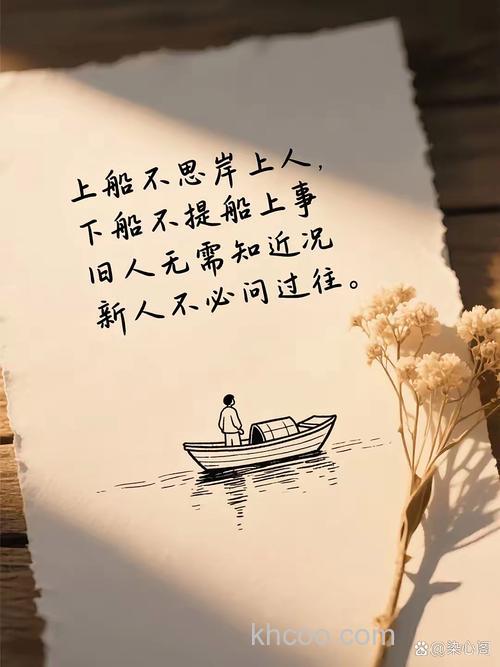 上船不思岸上人,
下船不提船上事
旧人无需知近况
新人不必问过往。
khcoo.com
@染心阁